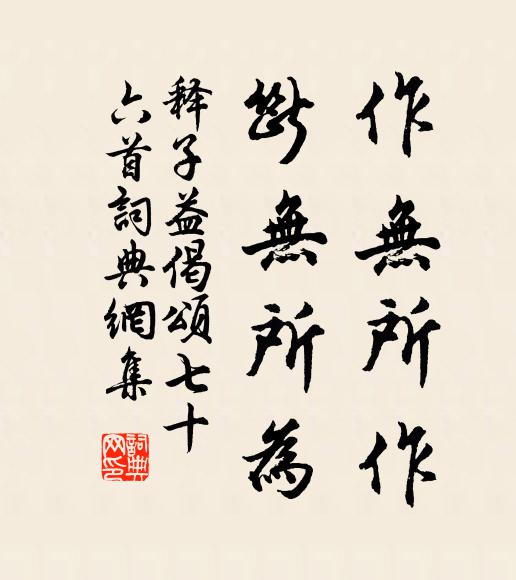 作無所作
斷無所為
释子益偈頌七十
六首詞典網集
詞典
网印